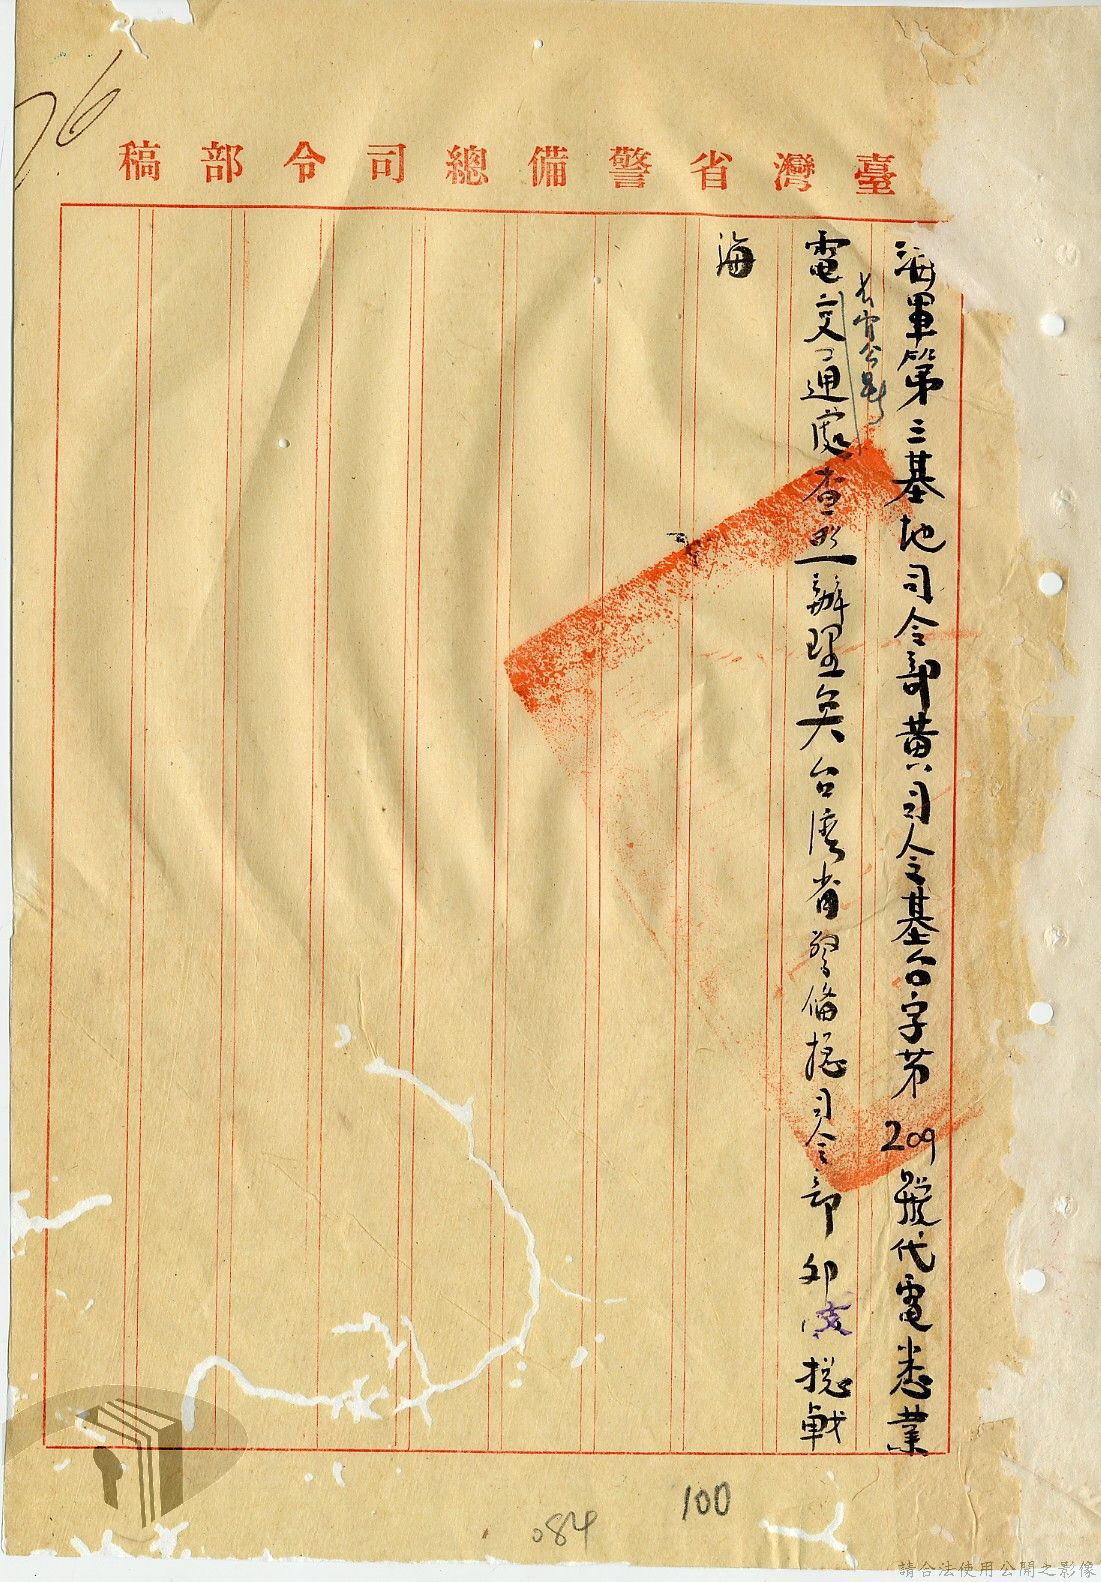 76
臺灣省警備總司令部稿
海軍第三基地司令部黃司令基台字第209號代電悉業
電交通處查照辦理矣台灣省警備總司令部卯 總戰
海
100
084
請合法使用公開之影像